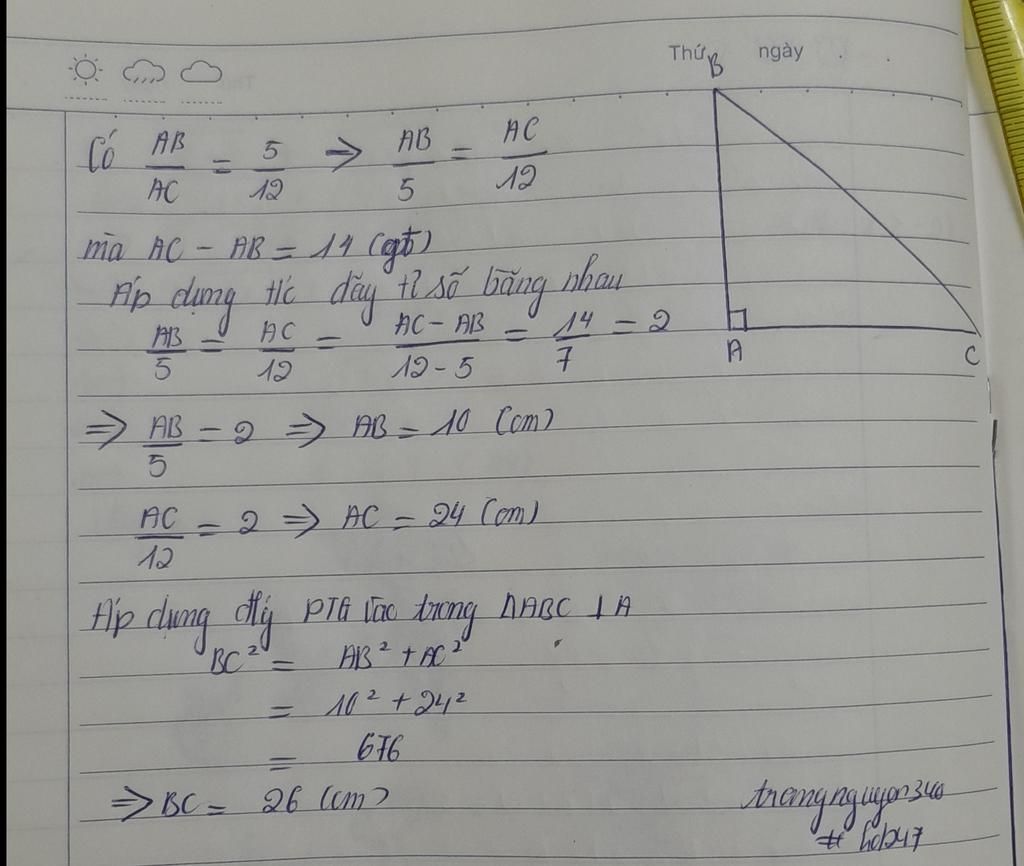 Thứ ngày
B
Có AB/AC = 5/12 ⇒ AB/5 = AC/12
mà AC - AB = 14 (gt)
Áp dụng t/c dãy tỉ số bằng nhau
AB/5 = AC/12 = AC - AB/12 - 5 = 14/7 = 2
A C
⇒ AB/5 = 2 ⇒ AB = 10 (cm)
AC/12 = 2 ⇒ AC = 24 (cm)
Áp dụng đlý PTG vào trong ΔABC ⊥ A
BC² = AB² + AC²
= 10² + 24²
= 676
⇒ BC = 26 (cm)
# hdz47